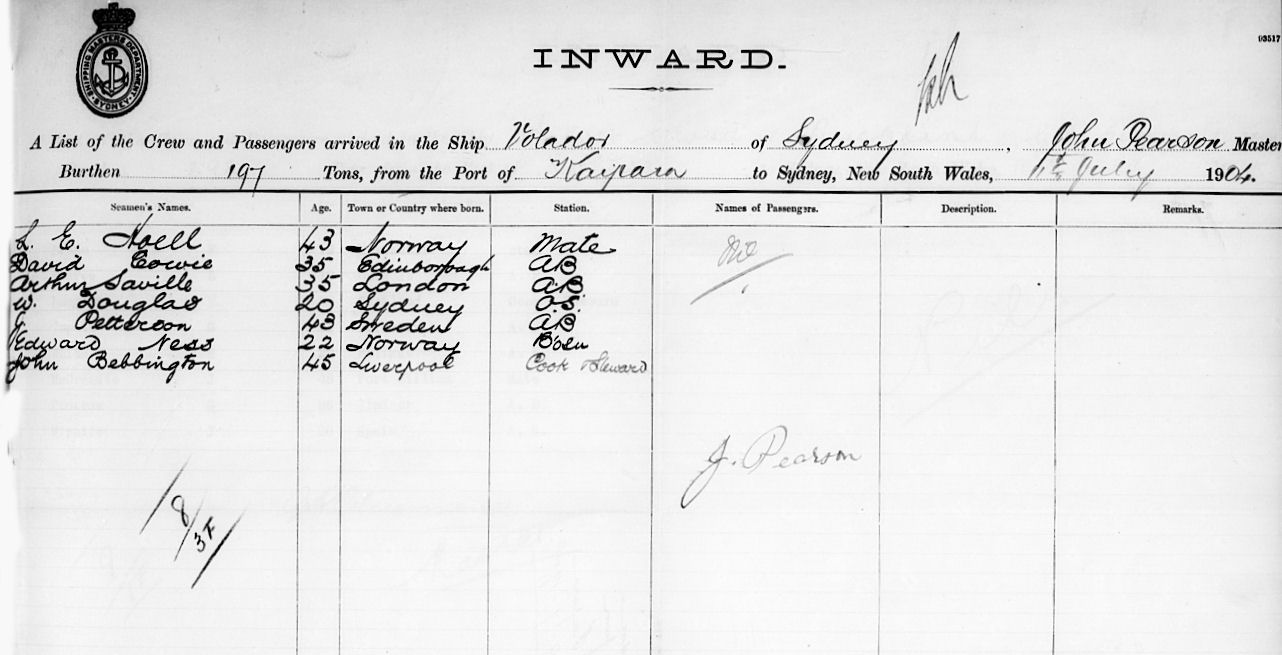 SHIPPING MASTERS DEPARTMENT · SYDNEY ·
INWARD.
03517
A List of the Crew and Passengers arrived in the Ship Volador of Sydney, John Pearson Master
Burthen 197 Tons, from the Port of Kaipara to Sydney, New South Wales, July 1904.
Seamen's Names. Age. Town or Country where born. Station. Names of Passengers. Description. Remarks.
L. E. Hoell 43 Norway Mate Nil
David Cowie 35 Edinborough AB
Arthur Saville 35 London A.B
W. Douglas 20 Sydney O.S.
Petterson 43 Sweden A.B
Edward Ness 22 Norway Bosn
John Bebbington 45 Liverpool Cook Steward
J. Pearson
8